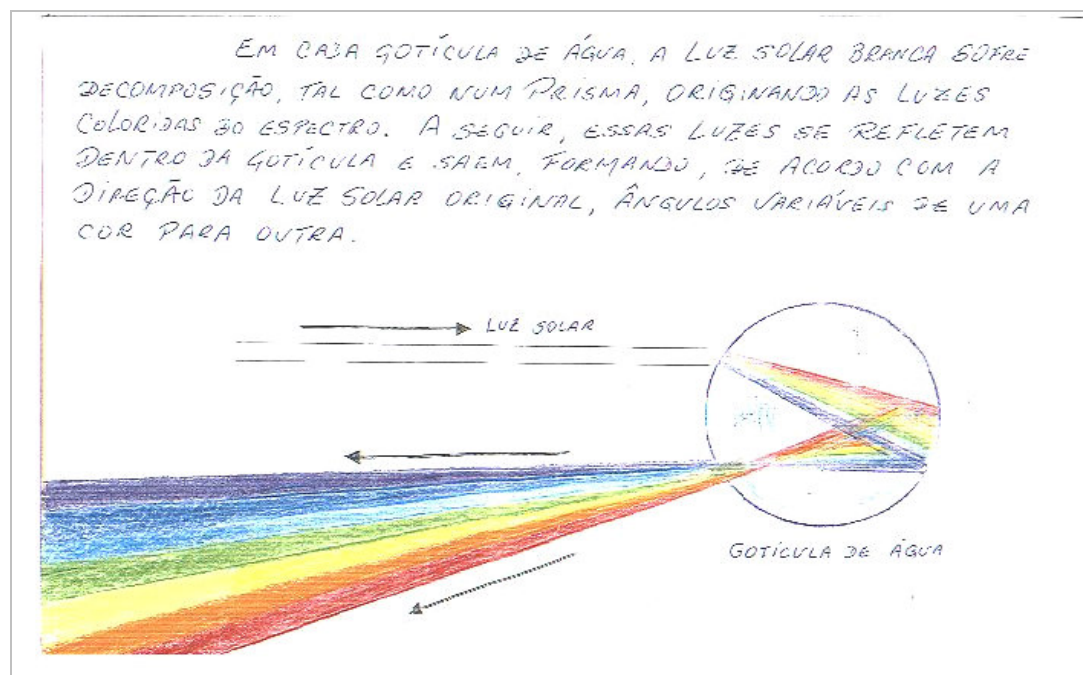 EM CADA GOTÍCULA DE ÁGUA, A LUZ SOLAR BRANCA SOFRE
DECOMPOSIÇÃO, TAL COMO NUM PRISMA, ORIGINANDO AS LUZES
COLORIDAS DO ESPECTRO. A SEGUIR, ESSAS LUZES SE REFLETEM
DENTRO DA GOTÍCULA E SAEM, FORMANDO, DE ACORDO COM A
DIREÇÃO DA LUZ SOLAR ORIGINAL, ÂNGULOS VARIÁVEIS DE UMA
COR PARA OUTRA.
LUZ SOLAR
GOTÍCULA DE ÁGUA